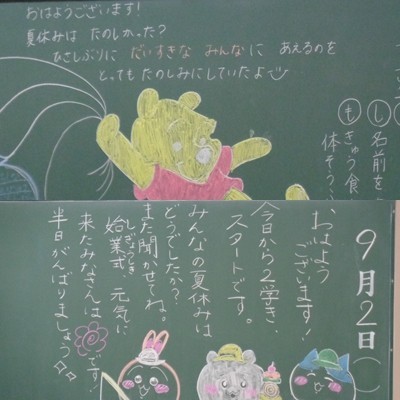 おはようございます！
夏休みは たのしかった？
ひさしぶりに だいすきな みんなに あえるのを
とっても たのしみにしていたよ
し 名前を
も きゅう食
体そう
9月2日
おはよう
ございます！
今日から2学き、
スタートです。
みんなの夏休みは
どうでしたか？
また聞かせてね。
しぎょうしき
始業式 元気に
来たみなさんは
です！
半日がんばりましょう